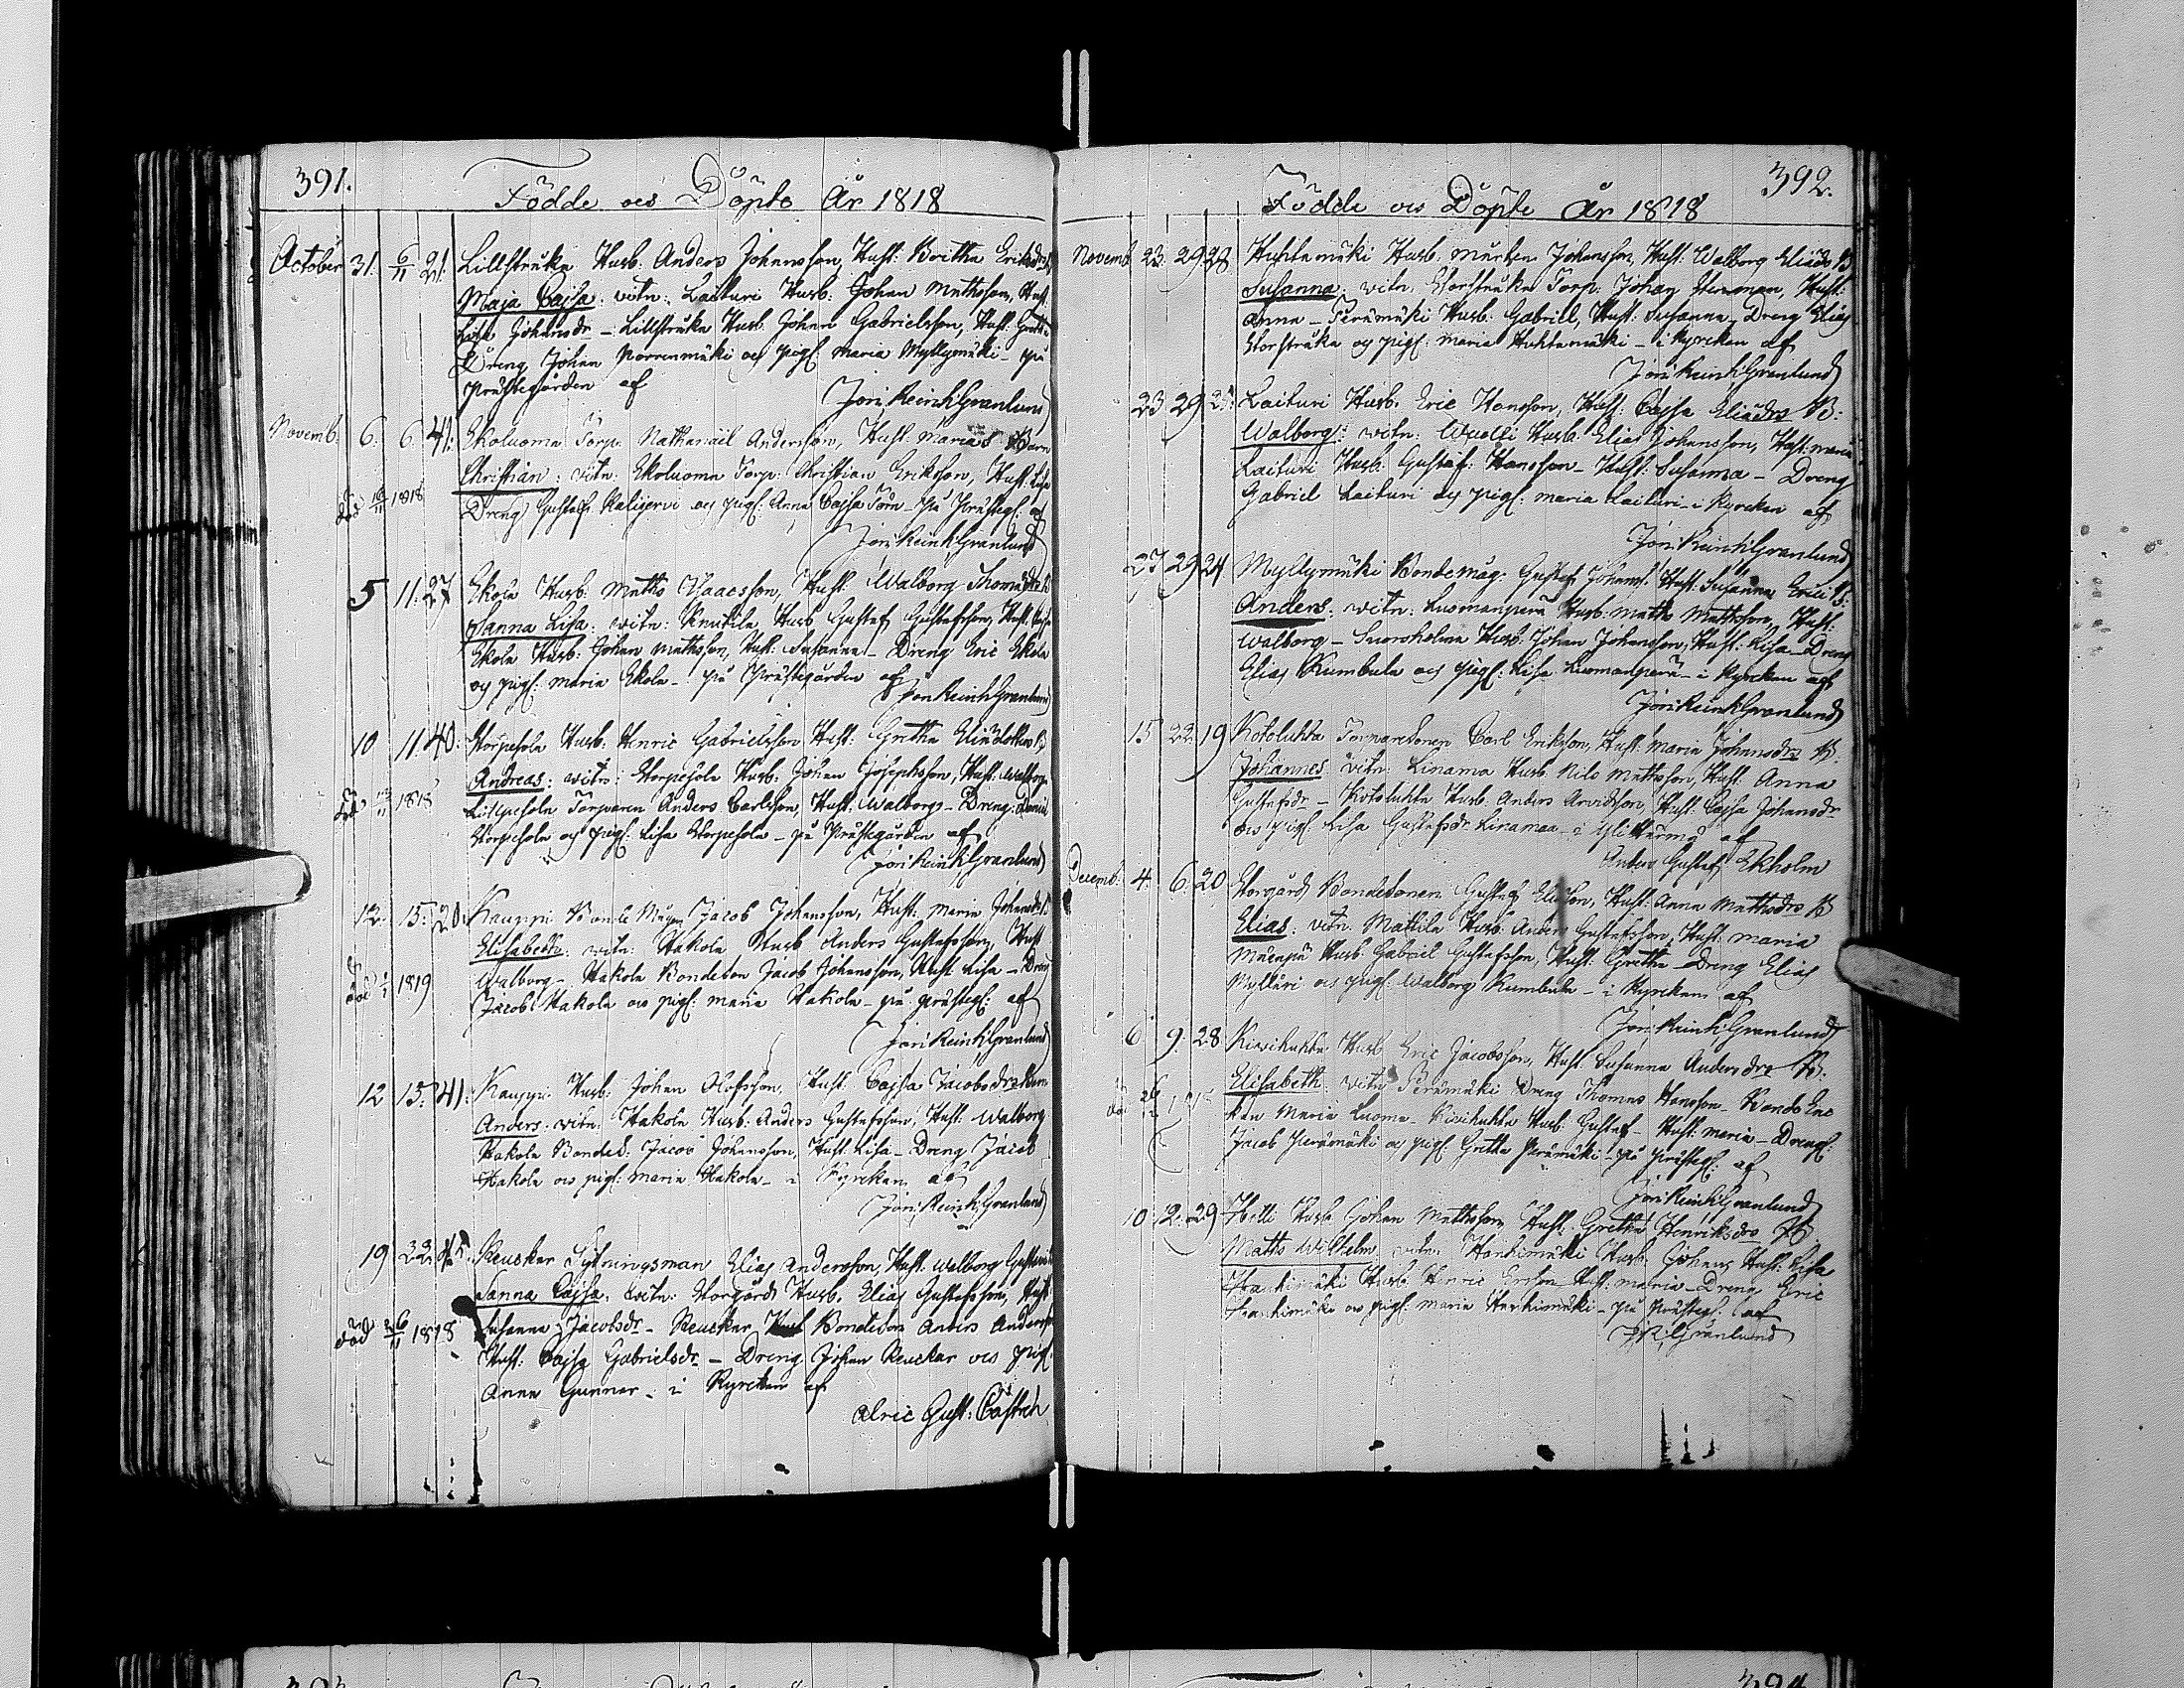 391.
Födde och Döpte År 1818
October 31. 6/11 21. Lillstruka Husb: Anders Johansson, Hust: Britha Eriksdr
Maja Cajsa: vitn: Laituri Husb: Johan Mathsson, Hust:
Lisa Johansdr - Lillstruka Husb. Johan Gabrielsson, Hust. Gretha
Dreng Johan Norrenmäki och pig: Maria Myllymäki - på
Prästegården af
Jöri Reinh: Granlund
Novemb: 6. 6. 41. Ekoluoma Torp. Nathanäil Andersson, Hust. Marias Barn
Christian: vitn: Ekoluoma Torp: Christian Eriksson, Hust: Lisa
död 1818 Dreng Gustaf Kaligervi och pig: Anna Cajsa Törn - på Prästeg: af
Jöri Reinh: Granlund
5 11. 27 Ekola Husb: Maths Isaacsson, Hust. Walborg Thomasdr B
Sanna Lisa: vitn: Knutila Husb Gustaf Gustafsson, Hust. Cajsa
Ekola Husb: Johan Mathsson, Hust: Susanna - Dreng Eric Ekola
och pig: Maria Ekola - på Prästegården af
Jöri Reinh Granlund
10 11. 40. Storpesola Husb: Henric Gabrielsson Hust: Gretha Eliædotters B
Andreas: vitn: Storpesola Husb. Johan Josephsson, Hust. Walborg
död 1818 Lillpesola Torparen Anders Carlsson, Hust. Walborg - Dreng: Daniel
Storpesola och pig: Lisa Storpesola - på Prästegården af
Jöri Reinh: Granlund
12. 15. 20. Kauppi Bonde Mågen Jacob Johansson, Hust. Maria Johansdr B
Elisabeth: vitn: Hakola Husb Anders Gustafsson, Hust
död 1819 Walborg - Hakola Bondeson Jacob Johansson, Hust Lisa - Dreng
Jacob Hakola och pig: Maria Hakola - på Prästeg: af
Jöri Reinh: Granlund
12 15. 41. Kauppi Husb: Johan Olofsson, Hust. Cajsa Jacobsdrs Barn
Anders. vitn: Hakola Husb: Anders Gustafsson, Hust. Walborg
Hakola Bondes: Jacob Johansson, Hust. Lisa - Dreng Jacob
Hakola och pig: Maria Hakola - i Kyrckan af
Jöri Reinh: Granlund
19 22. Reuckar Sytningsman Elias Andersson, Hust. Walborg
Sanna Cajsa. vitn: Storgård Husb. Elias Gustafsson, Hust
död 26/11 1818 Susanna Jacobsdr - Reuckar Bondeson Anders Andersson
Hust: Cajsa Gabrielsdr - Dreng Johan Reuckar och pig:
Anna Gunnar - i Kyrckan af
Alric Gust: Castrén
392.
Födde och Döpte År 1818
Novemb 23. 29. 28 Huhtamäki Husb. Mårten Johansson, Hust. Walborg Eliædr B
Susanna: vitn. Storstruka Torp: Johan Stenman, Hust:
Anna - Perämäki Husb: Gabriel, Hust: Susanna - Dreng Elias
Storstruka och pig: Maria Huhtamäki - i Kyrckan af
Jöri Reinh: Granlund
23 29 25. Laituri Husb. Eric Hansson, Hust: Cajsa Eliædrs B:
Walborg: vitn: Wuolli Husb. Elias Johansson, Hust: Maria
Laituri Husb: Gustaf: Hansson - Hust: Susanna - Dreng
Gabriel Laituri och pig: Maria Laituri - i Kyrckan af
Jöri Reinh: Granlund
27 29 24 Myllymäki Bondemåg: Gustaf Johans: Hust: Susanna Erici B:
Anders: vitn: Luomanperä Husb: Maths Mathsson, Hust:
Walborg - Husb: Johan Johansson, Hust: Lisa - Dreng
Elias Rumbula och pig: Lisa Luomanperä - i Kyrckan af
Jöri Reinh: Granlund
15 22. 19 Kotoluhta Torparesonen Carl Eriksson, Hust. Maria Johansdrs B.
Johannes vitn: Linama Husb. Nils Mathsson, Hust Anna
Gustafsdr - Kotoluhta Husb: Anders Arvidsson, Hust Cajsa Johansdr
och pig: Lisa Gustafsdr Linamaa - i af
Anders Gustaf Ekholm
Decemb: 4. 6. 20 Storgård Bondesonen Gustaf Eliæson, Hust: Anna Mathsdrs B
Elias: vitn. Mattila Husb. Anders Gustafsson, Hust: Maria
Mäenpä Husb: Gabriel Gustafsson, Hust: Gretha - Dreng Elias
Mylläri och pig: Walborg Rumbula - i Kyrckan af
Jöri Reinh: Granlund
6 9. 28 Kivihuhta Husb Eric Jacobsson, Hust Susanna Andersdrs B.
Elisabeth vitn Perämäki Dreng Thomas Hansson - Bonde
Maria Luoma - Kivihuhta Husb: Gustaf - Hust: Maria - Dreng:
Jacob Perämäki och pig: Gretha Perämäki - på Prästeg: af
Jöri Reinh: Granlund
10 12. 29 Husb Johan Mathsson, Hust: Gretha Henriksdrs B.
Maths Wilhelm vitn: Hanhimäki Husb. Johan, Hust: Lisa
Hanhimäki Husb: Henric Ersson Hust: Maria - Dreng Eric
Hanhimäki och pig: Maria Hanhimäki - på Prästeg: af
J: R: Granlund
393
394